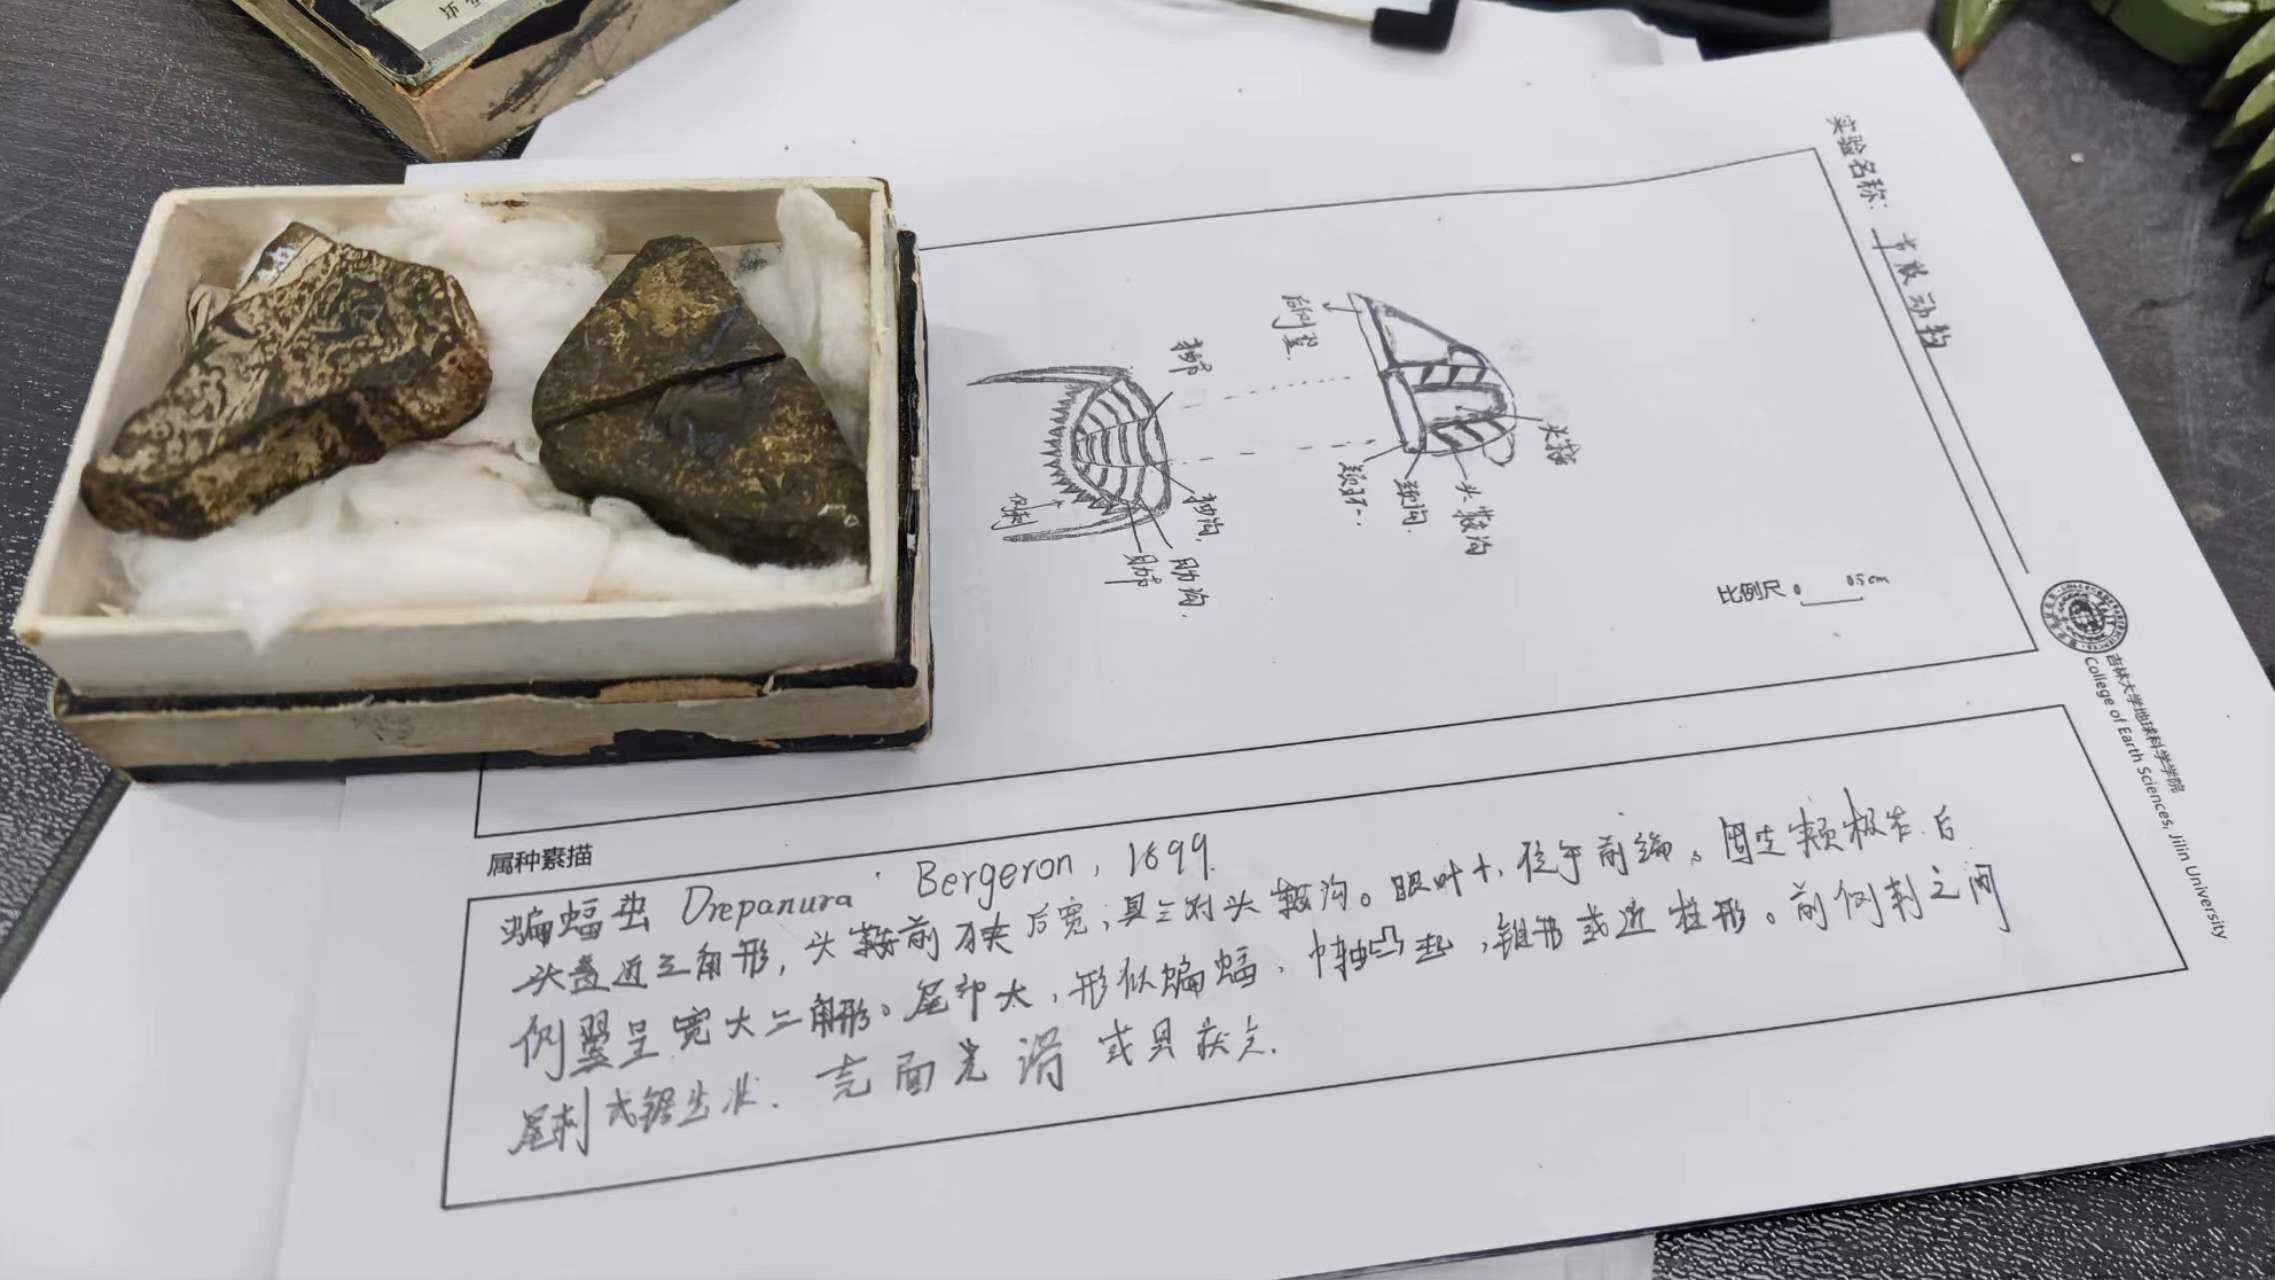 实验名称: 节肢动物
后侧翼
轴节
头鞍
颈环
颈沟
头鞍沟
侧刺
轴沟
肋节
肋沟
比例尺 0 0.5cm
吉林大学地球科学学院
College of Earth Sciences, Jilin University
属种素描
蝙蝠虫 Drepanura Bergeron, 1899.
头盖近三角形, 头鞍前狭后宽; 具三对头鞍沟。眼叶小, 位于前端。固定颊极宽. 后
侧翼呈宽大三角形。尾部大, 形似蝙蝠, 中轴凸起, 锥形或近柱形。前侧刺之间
尾刺式锯齿状. 壳面光滑或具